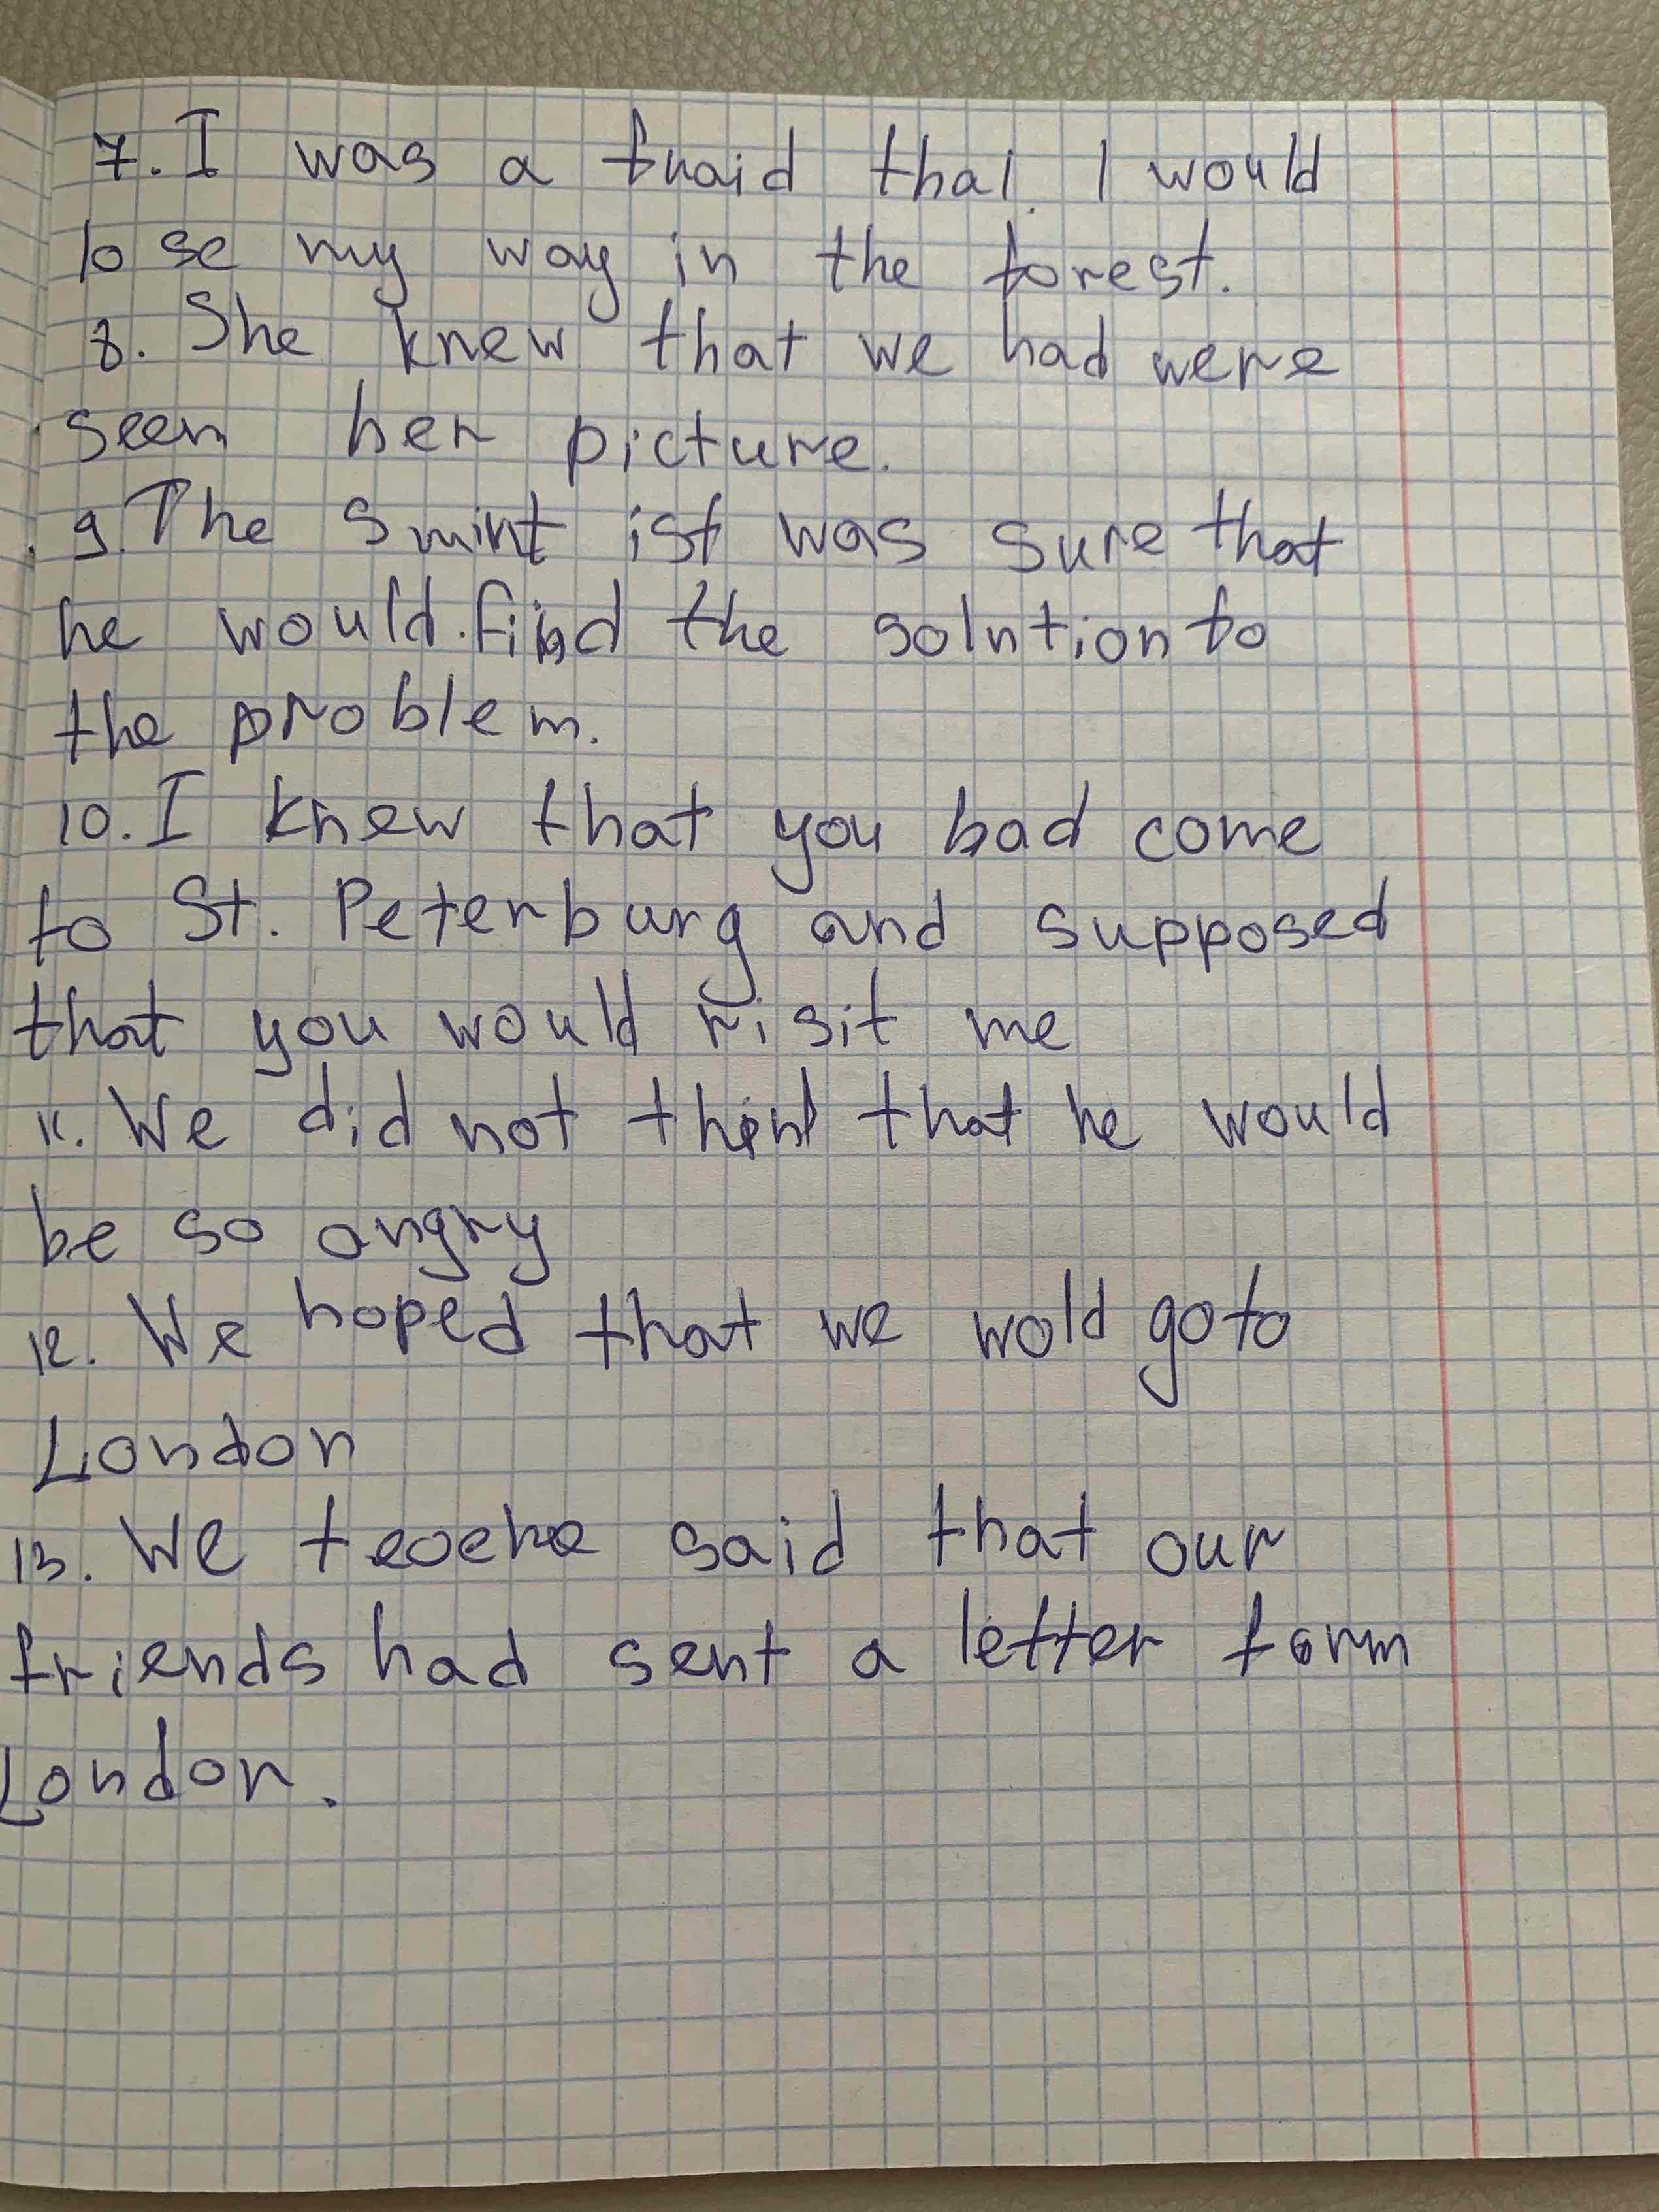 7. I was a fraid that I would
lose my way in the forest.
8. She knew that we had were
seen her picture.
9. The smint ist was sure that
he would find the solution to
the problem.
10. I knew that you had come
to St. Peterburg and supposed
that you would visit me
11. We did not think that he would
be so angry
12. We hoped that we wold go to
London
13. We said that our
friends had sent a letter form
London.